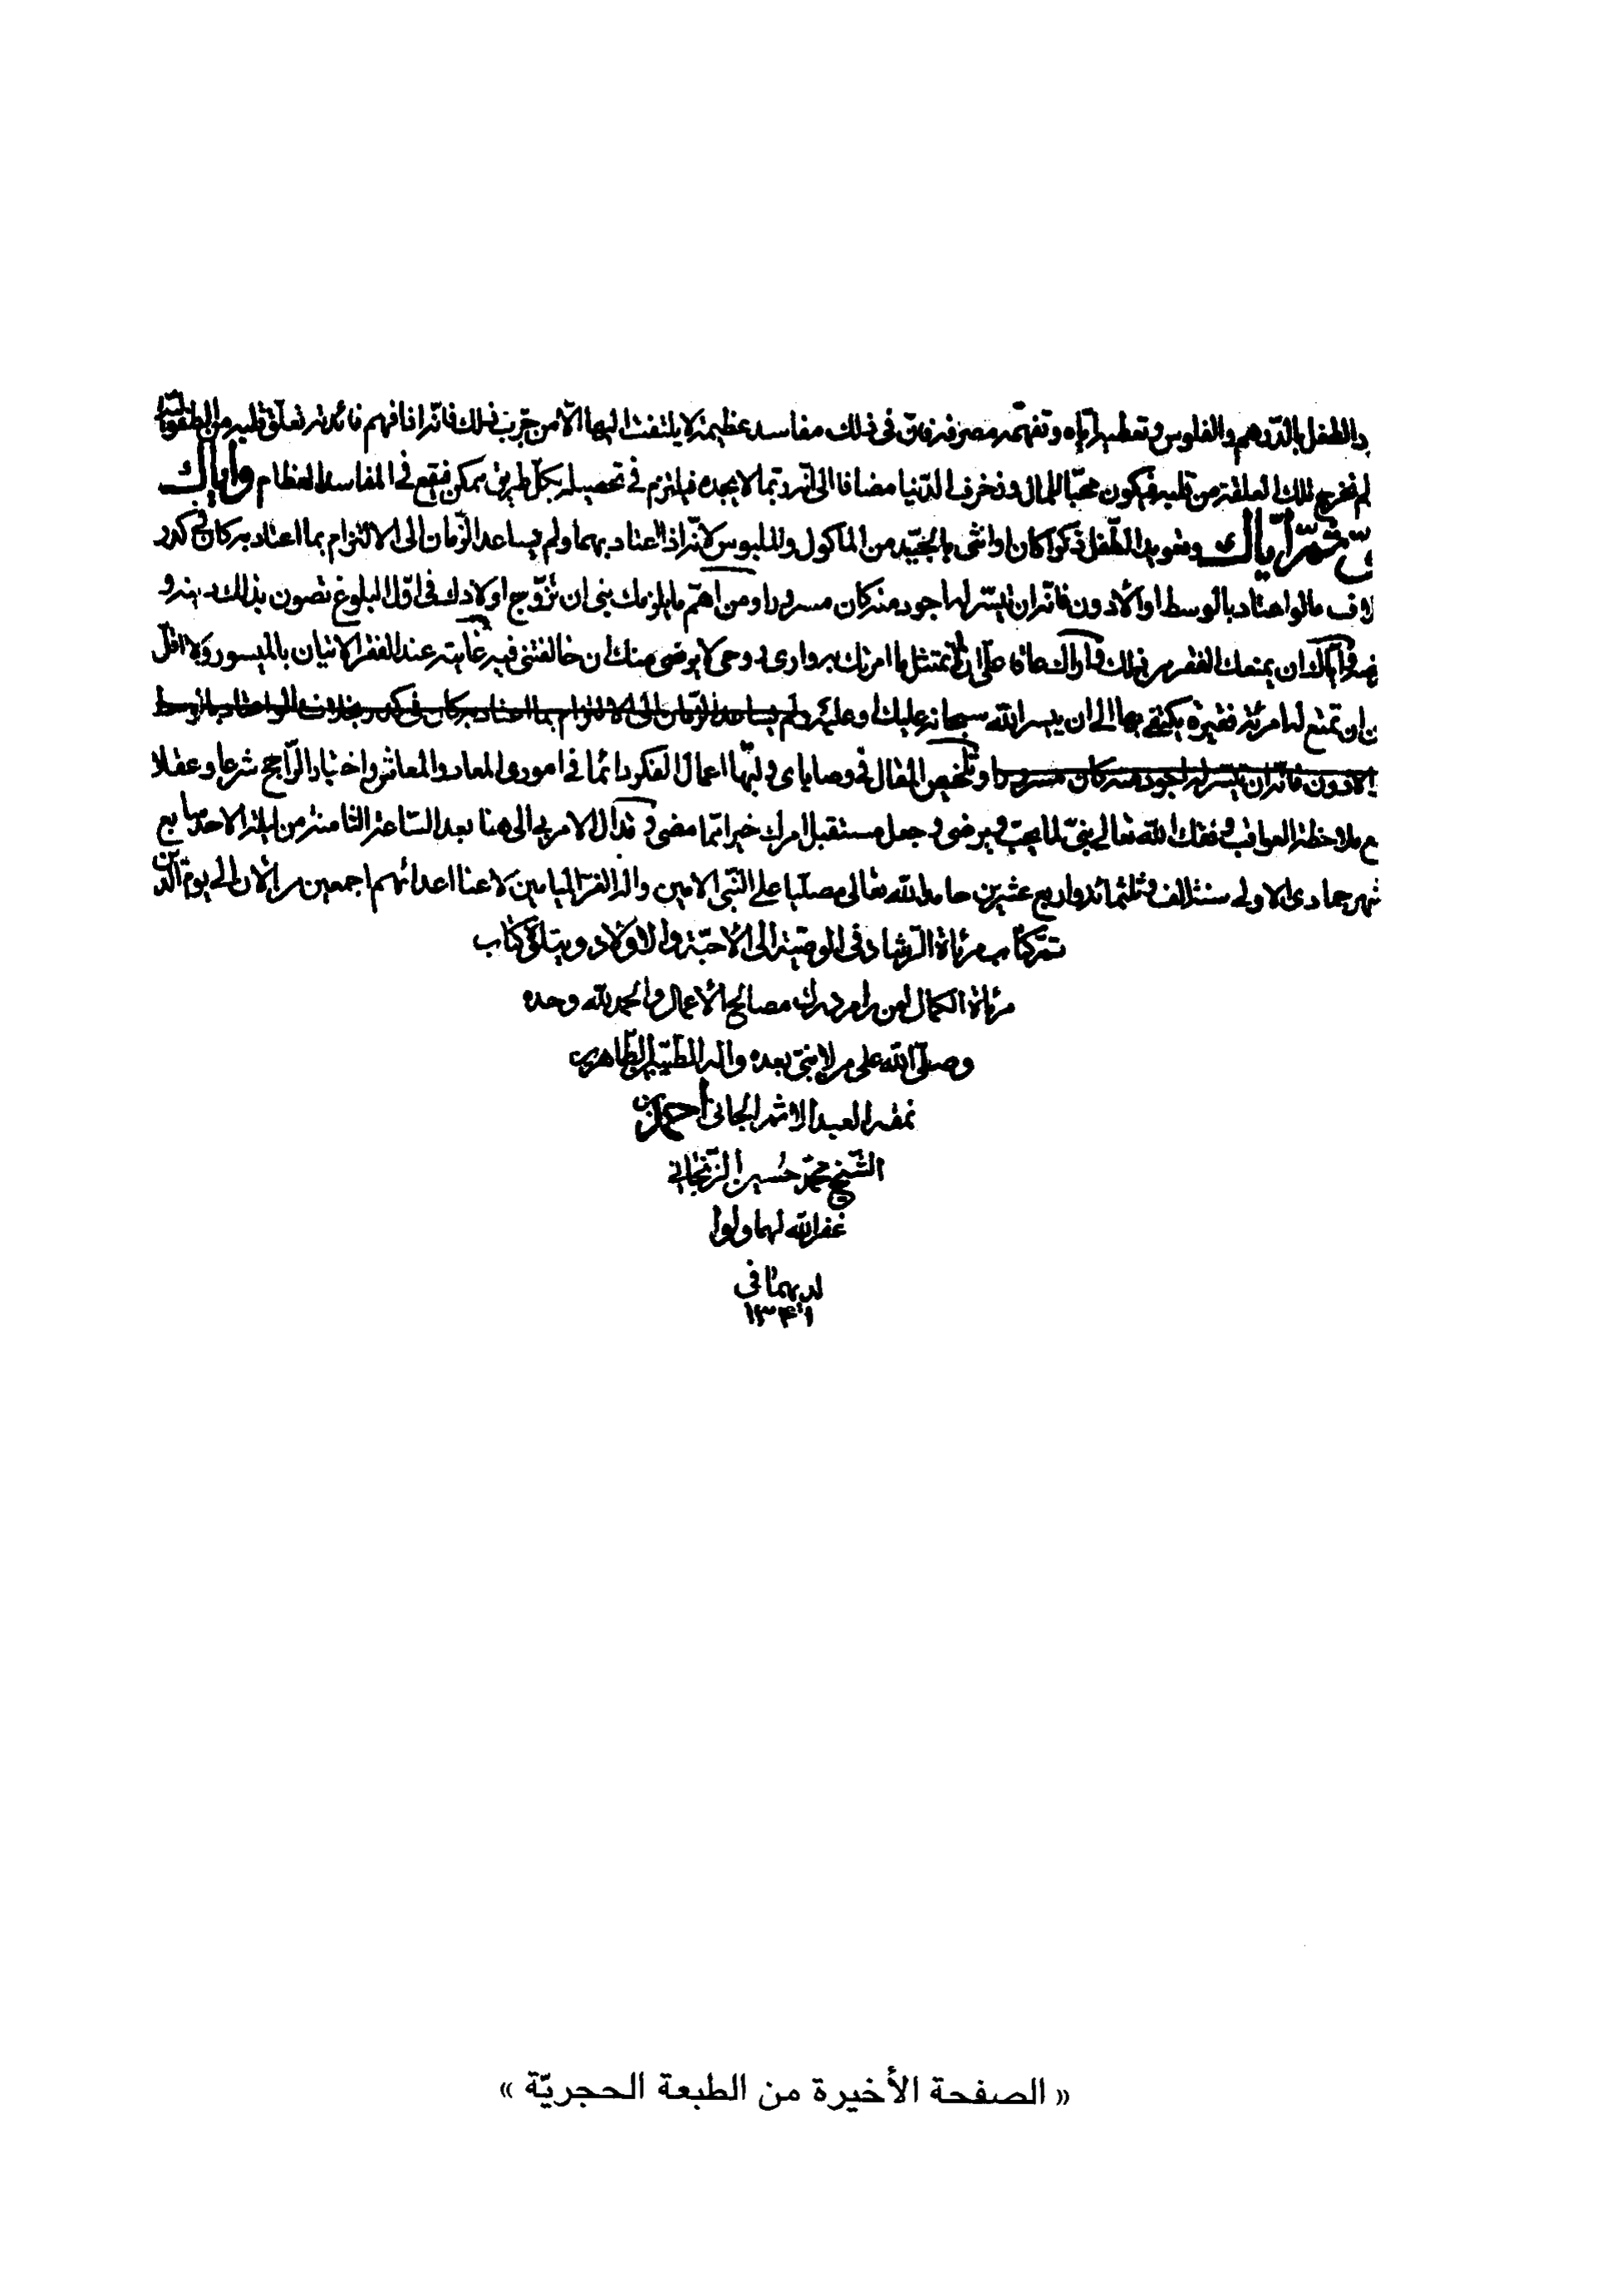 الطفل بالدّرهم والفلوس وتعطيه ايّاه وتفهّمه مصرفه فانّ في ذلك مفاسد عظيمة لا يلتفت اليها الّا من جرّب ذلك فانّه اذا فهم فائدته تعلّق قلبه
لم تخرج تلك العلقة من قلبه فيكون محبّا للمال وزخرف الدّنيا مضافا الى انّه ربّما لا يجده فيلتزم في تحصيله بكلّ طريق ممكن فيقع في المفاسد العظام وايّاك
ثمّ ايّاك وتعويد الطّفل ذكرا كان او انثى بالجيّد من المأكول والملبوس لانّه اذا اعتاد بهما ولم يساعد الزّمان الى الالتزام بما اعتاد به كان في كدر
ما لو اعتاد بالوسط او الأدون فانّه ان تيسّر لها اجود منه كان مسرورا ومن اهمّ ما يلزمك بنى ان تزوّج اولادك في اوّل البلوغ تصون بذلك
وايّاك ان يمنعك الفقر من ذلك واراك عاقا علىّ ان لم تمتثل ما امرتك به وارى روحى لا يرضى منك ان خالفتنى فيه غايته عند الفقر الاتيان بالميسور ولا اقلّ
ان تمتع له امرئة فقيرة يكتفى بها الى ان ييسر الله سبحانه عليك او عليه ولم يساعد الزّمان الى الالتزام بما اعتاد به كان في كدر بخلاف ما لو اعتاد بالوسط
الادون فانّه ان تيسّر له اجود منه كان مسرورا وتلخيص المقال في وصاياى ولبّها اعمال الفكر دائما في امورى المعاد والمعاش واختيار الرّاجح شرعا وعقلا
ملاحظة العواقب وفقك الله تعالى بنىّ لما يحبّ ويرضى وجعل مستقبل امرك خيرا ممّا مضى وقد ال الامر بى الى هنا بعد السّاعة الثامنة من ليلة الاحد
شهر جمادى الاولى سنة الف وثلثمائة واربع عشرين حامدا لله تعالى مصلّيا على النّبى الامين واله الغرّ الميامين لاعنا اعدائهم اجمعين من الأن الى يوم الدّين
تمّ كتاب مرئاة الرّشاد في الوصيّة الى الأحبّة والاولاد ويتلوه كتاب
مرئاة الكمال لمن رام درك مصالح الأعمال والحمد لله وحده
وصلّى الله على من لا نبىّ بعده واله الطيّبين الطّاهرين
نمقه العبد الاثم الجانى احمد بن
الشّيخ محمّد حسين الزّنجانى
غفر الله لهما ولوا
لديهما في
١٣٤١
« الصفحة الأخيرة من الطبعة الحجريّة »